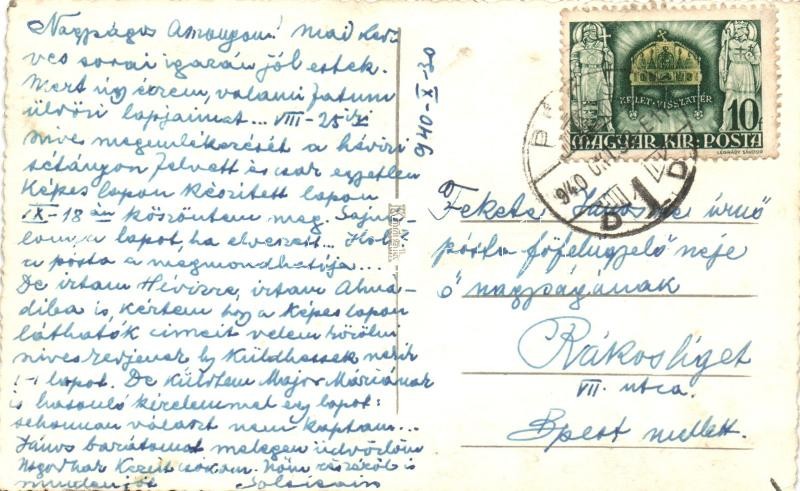 Nagyságos Asszonyom! Mai ked-
ves sorai igazán jól estek.
Mert úgy érzem, valami
üdvözlő lapjaimat... VIII-25
szíves megemlékezését a hévízi
sétányon felvett és csak egyetlen
képes lapon készített lapon
IX-18 án köszöntem meg. Sajn-
lom a lapot, ha elveszett... Hol?
a posta a megmondhatója...
De írtam Hévízre, írtam
is, kértem hogy a képes lapon
láthatók címeit velem közölni
szíveskedjenek hogy küldhessek nekik
1-1 lapot. De küldtem Major Máriának
is hasonló kérelemmel egy lapot:
sehonnan választ nem kaptam...
János barátomat melegen üdvözlöm
Nagyságodnak kezeit csókolom. Nőm részéről is
minden jót
940-X-30
KELET-VISSZATÉR
10f
MAGYAR·KIR·POSTA
LÉGRÁDY SÁNDOR
940
B
Fekete János ny
posta-főfelügyelő neje
ő nagyságának
Rákosliget
VII. utca.
Bpest mellett.